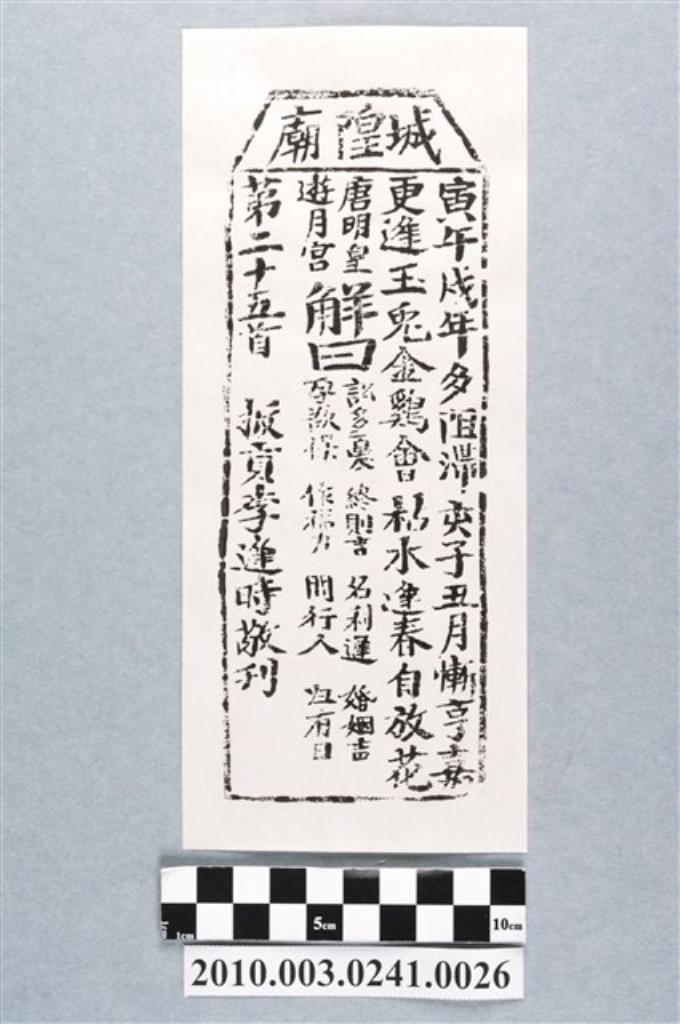 城隍廟
寅午戌年多阻滯 亥子丑月漸亨嘉
更逢玉兎金鷄會 木逢春自放花
唐明皇
遊月宮
解曰
訟多憂 終則吉 名利遲 婚姻吉
孕欲保 作福力 問行人 歸有日
第二十五首 拔貢李逢時敬刊
1cm 5cm 10cm
2010.003.0241.0026